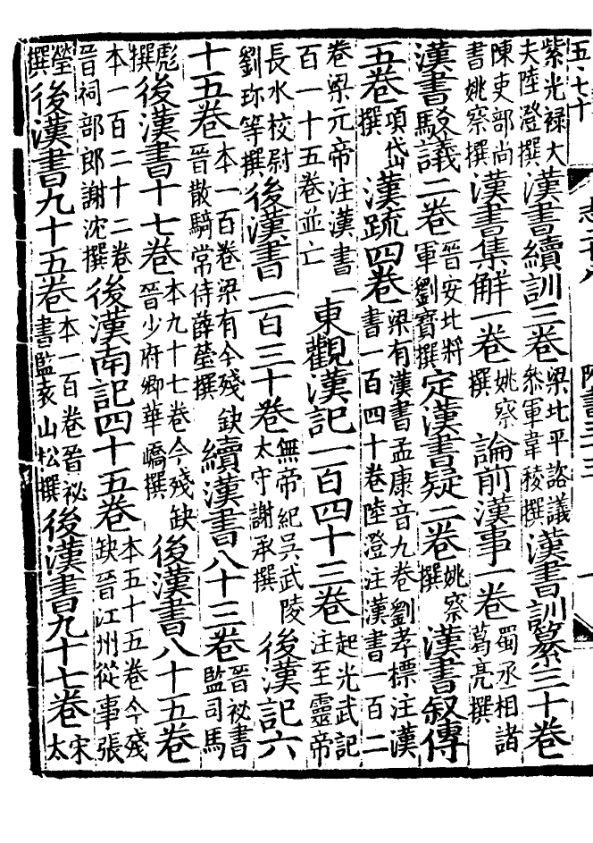 五·七十 志二十八 隋書三十三 一
紫光禄大夫陸澄撰漢書續訓三卷梁北平諮議叅軍韋稜撰漢書訓纂三十卷
陳吏部尚書姚察撰漢書集解一卷姚察撰論前漢事一卷蜀丞相諸葛亮撰
漢書駁議二卷晉安北將軍劉寶撰定漢書疑二卷姚察撰漢書叙傳
五卷項岱撰漢疏四卷梁有漢書孟康音九卷劉孝標注漢書一百四十卷陸澄注漢書一百二
卷梁元帝注漢書一百一十五卷並亡東觀漢記一百四十三卷起光武記注至靈帝
長水校尉劉珍等撰後漢書一百三十卷無帝紀吳武陵太守謝承撰後漢記六
十五卷本一百卷梁有今殘缺晉散騎常侍薛瑩撰續漢書八十三卷晉祕書監司馬
彪撰後漢書十七卷本九十七卷今殘缺晉少府卿華嶠撰後漢書八十五卷
本一百二十二卷晉祠部郎謝沈撰後漢南記四十五卷本五十五卷今殘缺晉江州從事張
瑩撰後漢書九十五卷本一百卷晉祕書監袁山松撰後漢書九十七卷宋太